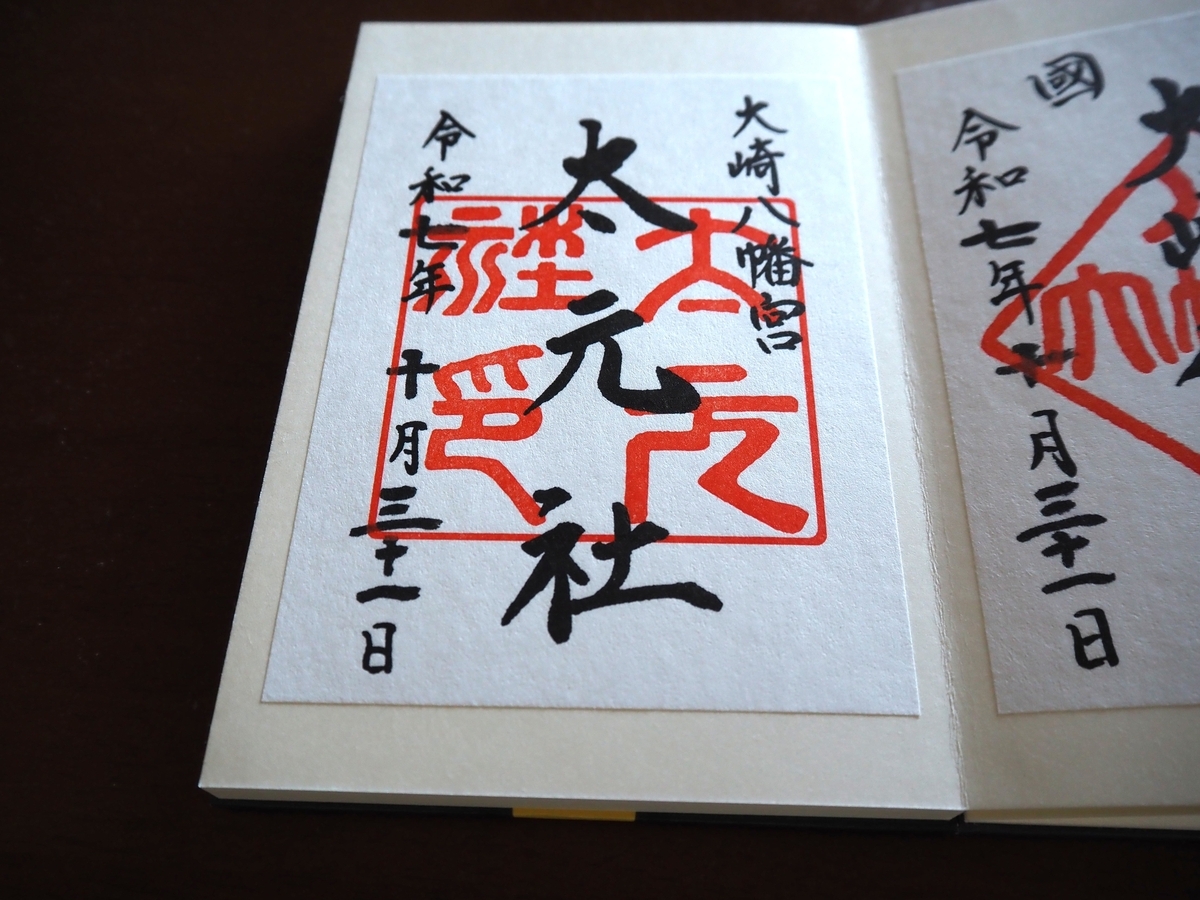 國
令和七年 十月三十一日
大崎八幡宮
太元社
太元社印
令和七年 十月三十一日